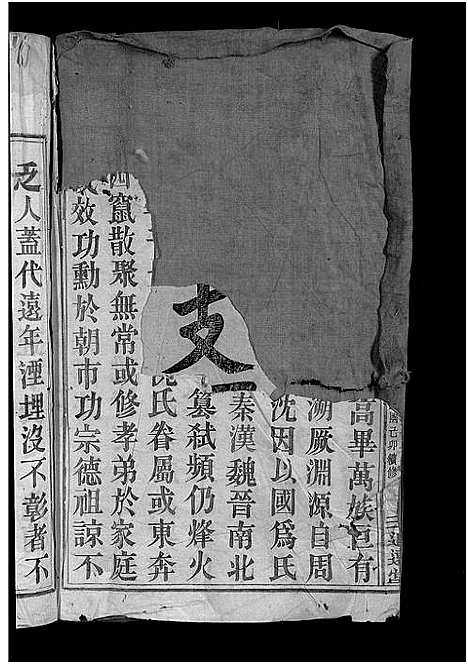 己卯續修
高畢萬族巨有
溯厥淵源自周
沈因以國爲氏
秦漢魏晉南北
篡弑頻仍烽火
支一
氏眷屬或東奔
四竄散聚無常或修孝弟於家庭
效功勳於朝市功宗德祖諒不
乏人蓋代遠年湮埋沒不彰者不